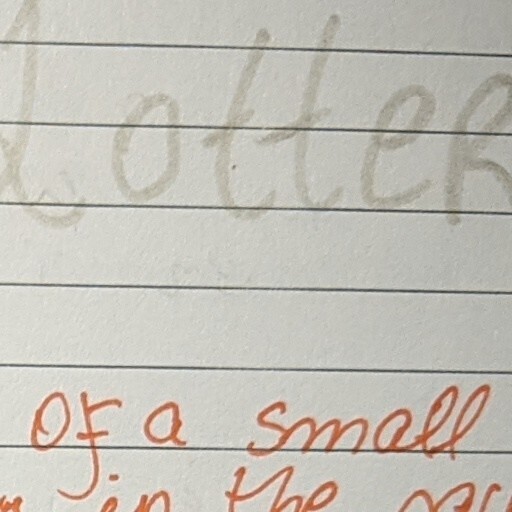 Lotter
of a small
in the